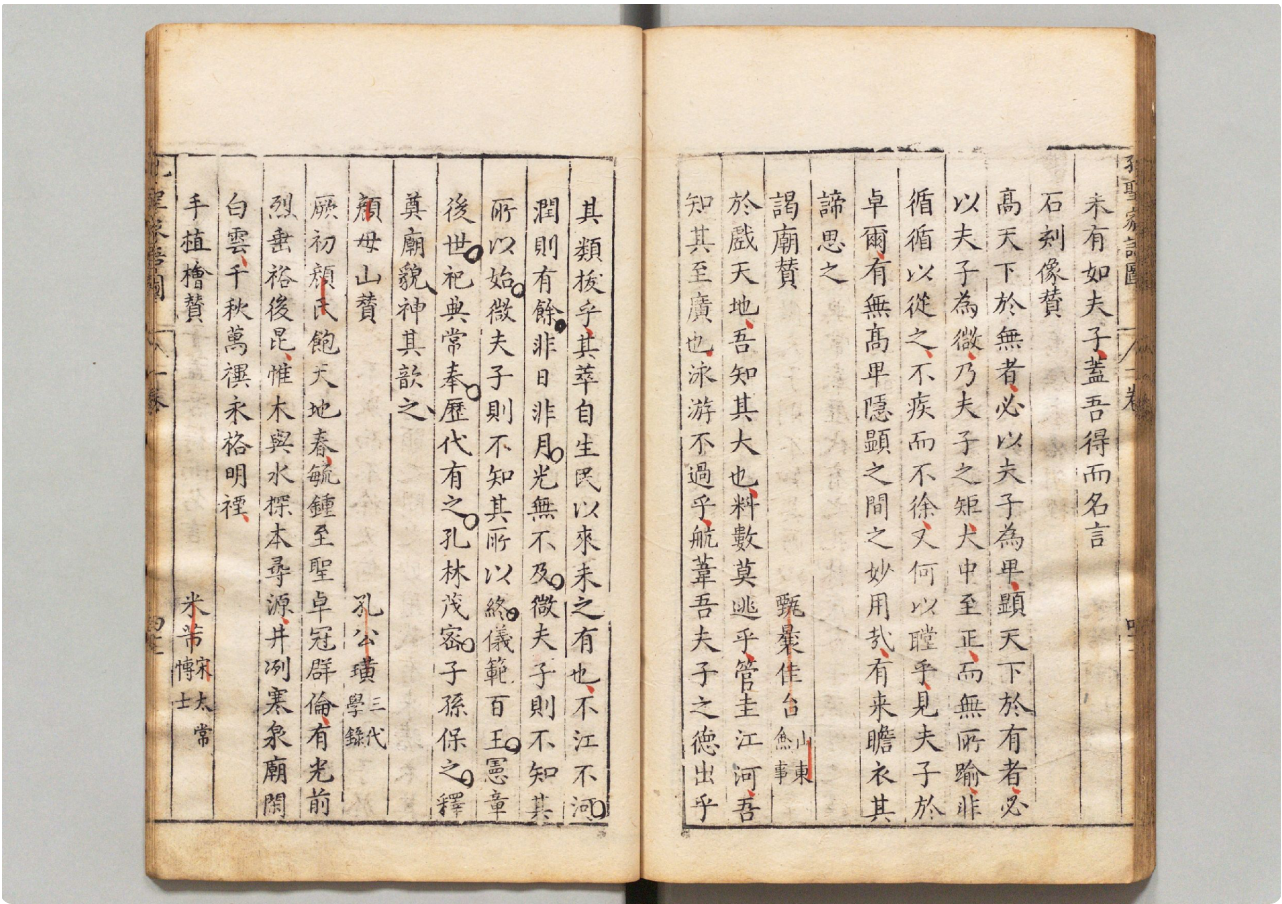 孔聖家語圖
一卷
未有如夫子蓋吾得而名言
石刻像贊
高天下於無者必以夫子為卑顯天下於有者必
以夫子為微乃夫子之矩大中至正而無所踰非
循循以從之不疾而不徐又何以瞠乎見夫子於
卓爾有無高卑隱顯之間之妙用㢤有来瞻衣其
諦思之
謁廟贊 甄㬥佳台山東僉事
於戲天地吾知其大也料數莫逃乎管圭江河吾
知其至廣也泳游不過乎航葦吾夫子之德出乎
其類拔乎其萃自生民以來未之有也不江不河
潤則有餘非日非月光無不及微夫子則不知其
所以始微夫子則不知其所以終儀範百王憲章
後世祀典常奉歷代有之孔林茂密子孫保之釋
奠廟貌神其歆之
顏母山贊 孔公璜三代學錄
厥初顏氏飽天地春毓鍾至聖卓冠群倫有光前
烈垂裕後昆惟木與水探本尋源井冽寒泉廟閟
白雲千秋萬禩永格明禋
手植檜贊 米芾宋太常博士